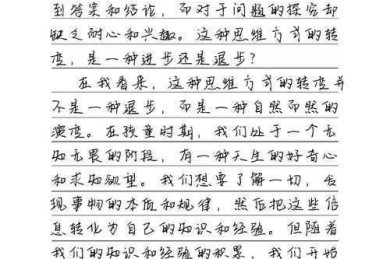 到答案和结论，而对于问题的探究却
缺乏耐心和兴趣。这种思维方式的转
变，是一种进步还是退步？
在我看来，这种思维方式的转变并
不是一种退步，而是一种自然而然的
演变。在孩童时期，我们处于一个无
知无畏的阶段，有一种天生的好奇心
和求知欲望。我们想要了解一切，发
现事物的本质和规律，然后把这些信
息转化为自己的知识和经验。但随着
我们的知识和经验的积累，我们开始